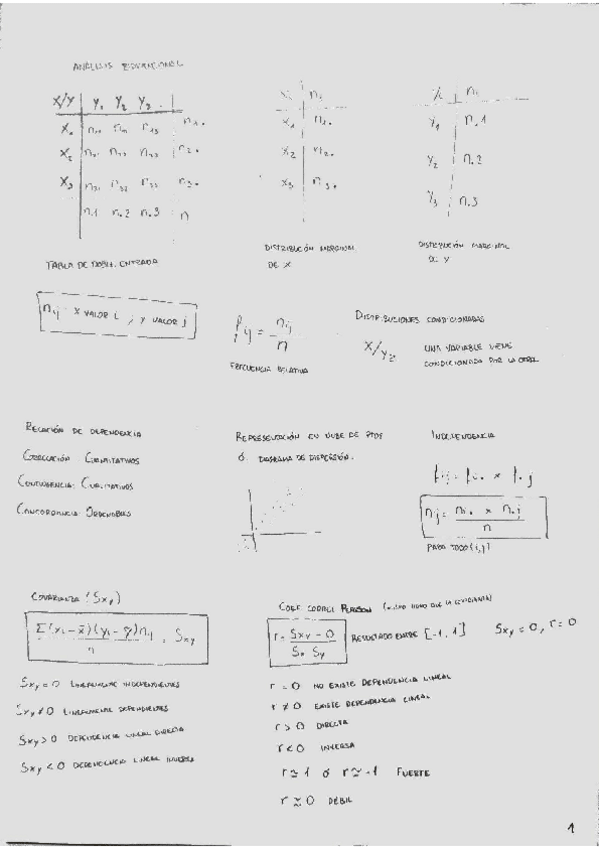 ANÁLISIS BIDIMENSIONAL
X/Y Y₁ Y₂ Y₃
X₁ n₁₁ n₁₂ n₁₃ n₁.
X₂ n₂₁ n₂₂ n₂₃ n₂.
X₃ n₃₁ n₃₂ n₃₃ n₃.
n.1 n.2 n.3 n
TABLA DE DOBLE ENTRADA
X nᵢ
X₁ n₁.
X₂ n₂.
X₃ n₃.
DISTRIBUCIÓN MARGINAL
DE X
nᵢ
Y₁ n.1
Y₂ n.2
Y₃ n.3
DISTRIBUCIÓN MARGINAL
DE Y
nᵢⱼ = X VALOR i , Y VALOR j
fᵢⱼ = nᵢⱼ / n
FRECUENCIA RELATIVA
DISTRIBUCIONES CONDICIONADAS
X/Y₂ UNA VARIABLE VIENE
CONDICIONADA POR LA OTRA
RELACIÓN DE DEPENDENCIA
CORRELACIÓN CUANTITATIVOS
CONTINGENCIA: CUALITATIVOS
CONCORDANCIA ORDENABLES
REPRESENTACIÓN EN NUBE DE PTOS
Ó DIAGRAMA DE DISPERSIÓN.
INDEPENDENCIA
fᵢⱼ = fᵢ. × f.ⱼ
nᵢⱼ = nᵢ. × n.ⱼ / n
PARA TODO (i,j)
COVARIANZA (Sxy)
Σ(xᵢ-x̄)(yᵢ-ȳ)nᵢⱼ / n = Sxy
Sxy = 0 LINEALMENTE INDEPENDIENTES
Sxy ≠ 0 LINEALMENTE DEPENDIENTES
Sxy > 0 DEPENDENCIA LINEAL DIRECTA
Sxy < 0 DEPENDENCIA LINEAL INVERSA
COEF CORREL PEARSON (MISMO SIGNO QUE LA COVARIANZA)
r = Sxy - 0 / Sx Sy RESULTADO ENTRE [-1, 1] Sxy = 0, r = 0
r = 0 NO EXISTE DEPENDENCIA LINEAL
r ≠ 0 EXISTE DEPENDENCIA LINEAL
r > 0 DIRECTA
r < 0 INVERSA
r ≃ 1 ó r ≃ -1 FUERTE
r ≃ 0 DÉBIL
1